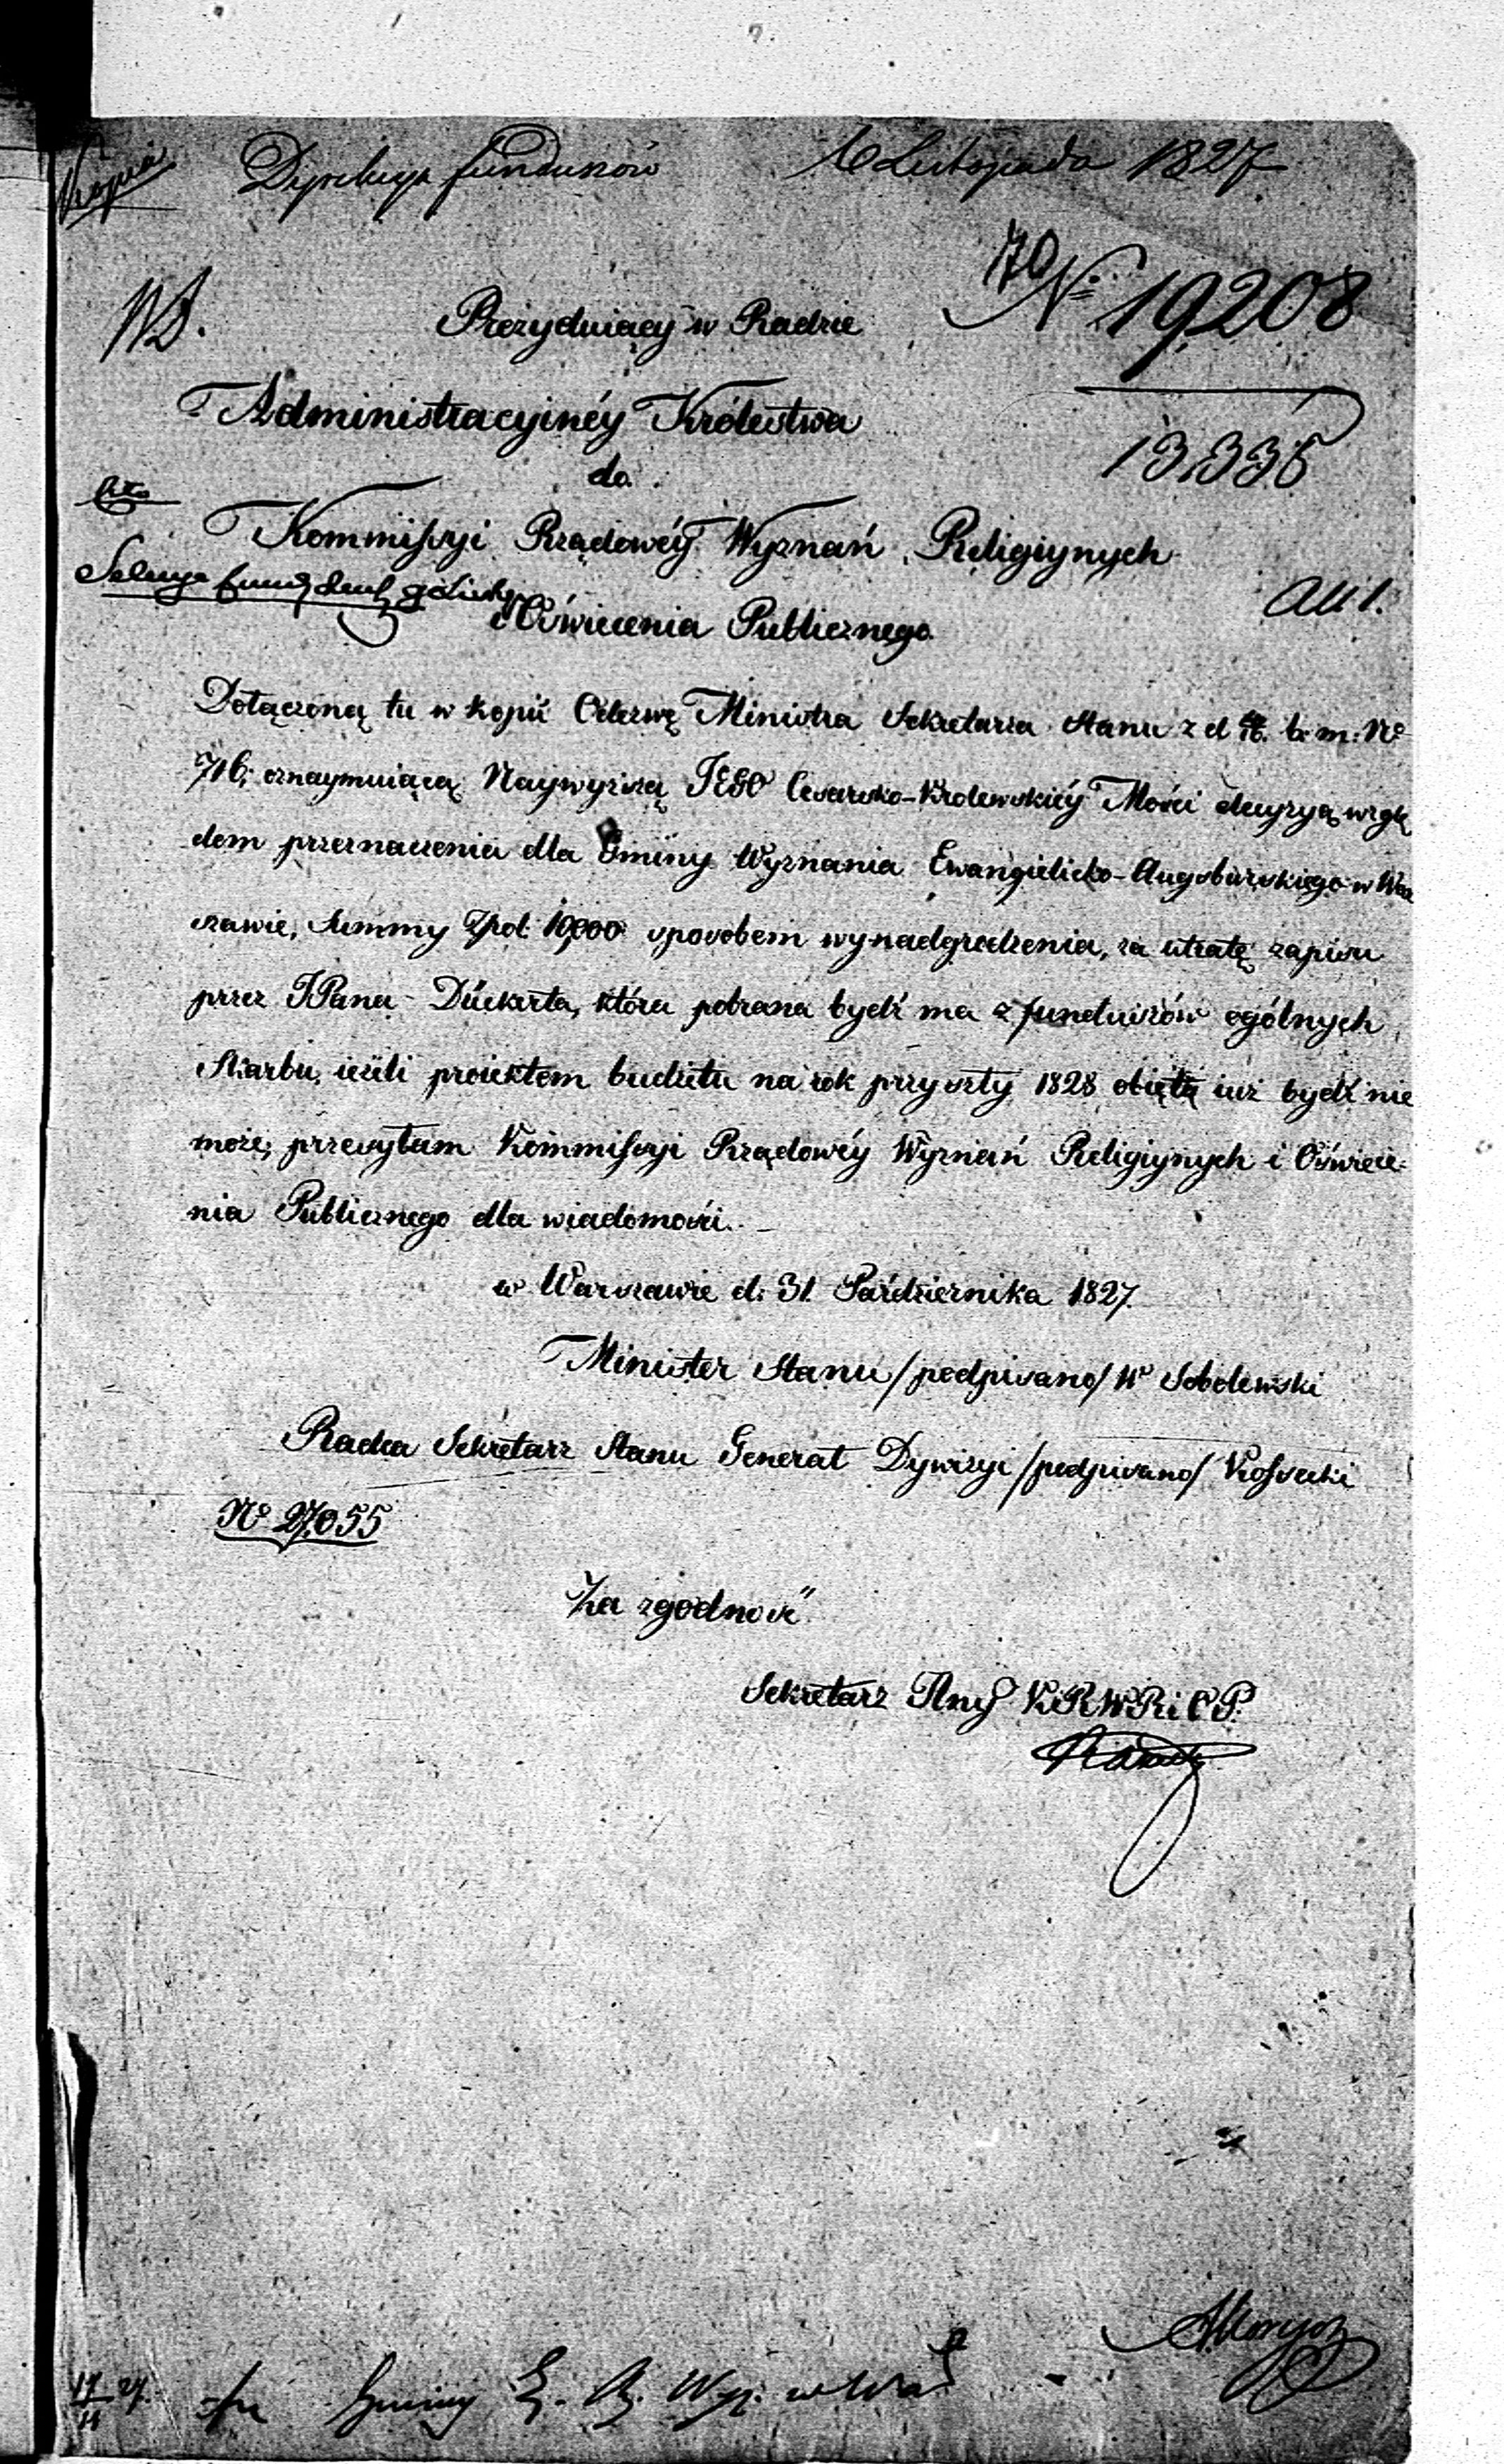 Kopia
Dyrekcya funduszów 6 Listopada 1827
70
№ 19208
13,335
Prezyduiący w Radzie
Administracyinéy Królestwa
do
Kommissyi Rządowéy Wyznań Religiynych
i Oświecenia Publicznego.
All 1.
Dołączoną tu w kopii Odezwę Ministra Sekretarza Stanu z d b: m: No
716; oznaymuiącą Naywyższą JEGO Cesarsko-Krolewskiéy Mości decyzyą wzglę
dem przeznaczenia dla Gminy Wyznania Ewangielicko-Augsburskiego w War
szawie, Summy Zpol: 10,000 sposobem wynadgrodzenia, za utratę zapisu
przez JPana Dückerta, która pobrana bydź ma z funduszów ogólnych
Skarbu, ieżeli proiektem budżetu na rok przyszły 1828 obiętą iuż bydź nie
może, przesyłam Kommissyi Rządowéy Wyznań Religiynych i Oświece-
nia Publicznego dla wiadomości. –
w Warszawie d: 31 Października 1827.
Minister Stanu /podpisano/ W Sobolewski
Radca Sekretarz Stanu Generał Dywizyi /podpisano/ Kossecki
No 27,055
Za zgodność
Sekretarz Jlny K.R.W.R. i O.P.
17/11 27. Gminy E. A. Wyz. w War